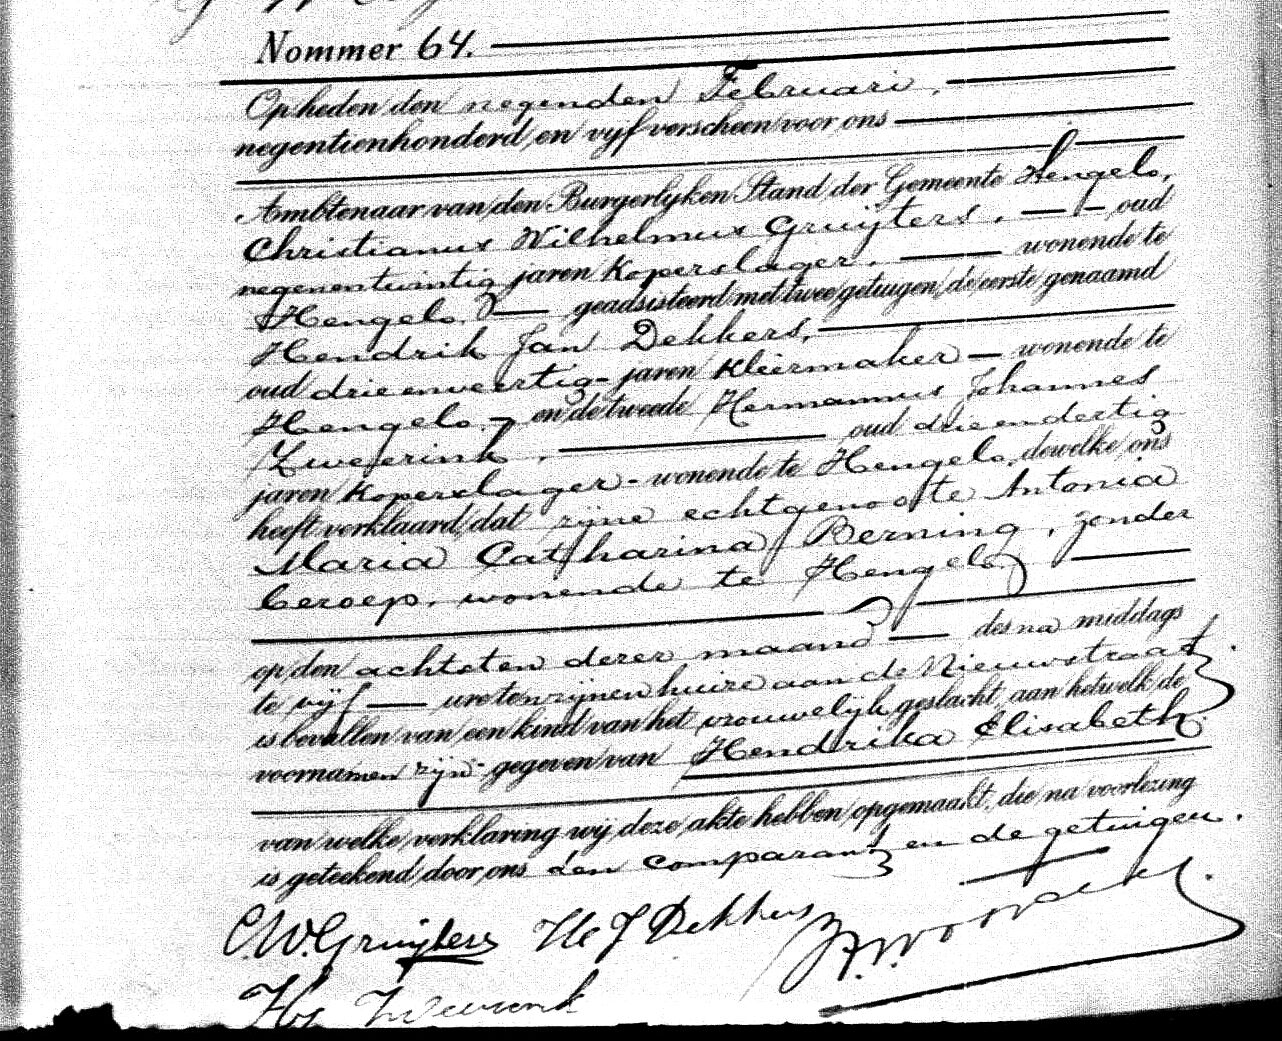 Nommer 64.
Op heden den negenden Februari,
negentienhonderd en vijf verscheen voor ons
Ambtenaar van den Burgerlijken Stand der Gemeente Hengelo,
Christianus Wilhelmus Gruijters, oud
negenentwintig jaren Koperslager, wonende te
Hengelo, geadsisteerd met twee getuigen, de eerste genaamd
Hendrik Jan Dekkers,
oud drieenveertig jaren Kleermaker wonende te
Hengelo en de tweede Hermannus Johannes
Zweferink, oud drieendertig
jaren Koperslager wonende te Hengelo, dewelke ons
heeft verklaard, dat zijne echtgenoote Antonia
Maria Catharina Berning, zonder
beroep, wonende te Hengelo
op den achtsten dezer maand des na middags
te vijf ure ten zijnen huize aan de Nieuwstraat
is bevallen van een kind van het vrouwelijk geslacht, aan hetwelk de
voornamen zijn gegeven van Hendrika Elisabeth
van welke verklaring wij deze akte hebben opgemaakt, die na voorlezing
is geteekend door ons den comparant en de getuigen.
C.W. Gruijters H J Dekkers